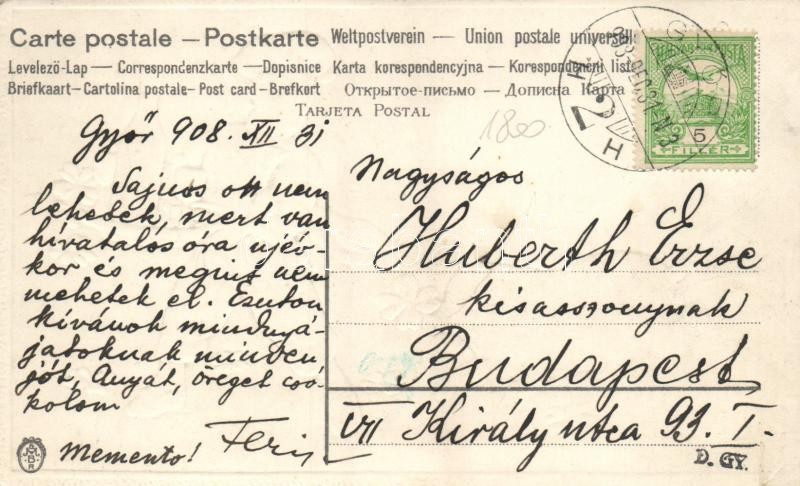 Carte postale — Postkarte Weltpostverein — Union postale universelle
Levelező-Lap — Correspondenzkarte — Dopisnice Karta korespondencyjna — Korespondenční lístek
Briefkaart — Cartolina postale — Post card — Brefkort Открытое-письмо — Дописна Карта
TARJETA POSTAL
MAGYAR KIR. POSTA
5
FILLÉR
1800
Győr 908. XII 31
Sajnos ott nem
lehetek, mert van
hivatalos óra ujév-
kor és megint nem
mehetek el. Ezuton
kívánok mindnyá-
jatoknak minden
jót, Anyát, öreget csó-
kolom
Feri
Memento!
Nagyságos
Huberth Erzse
kisasszonynak
Budapest
VII Király utca 93. I.
D. GY.